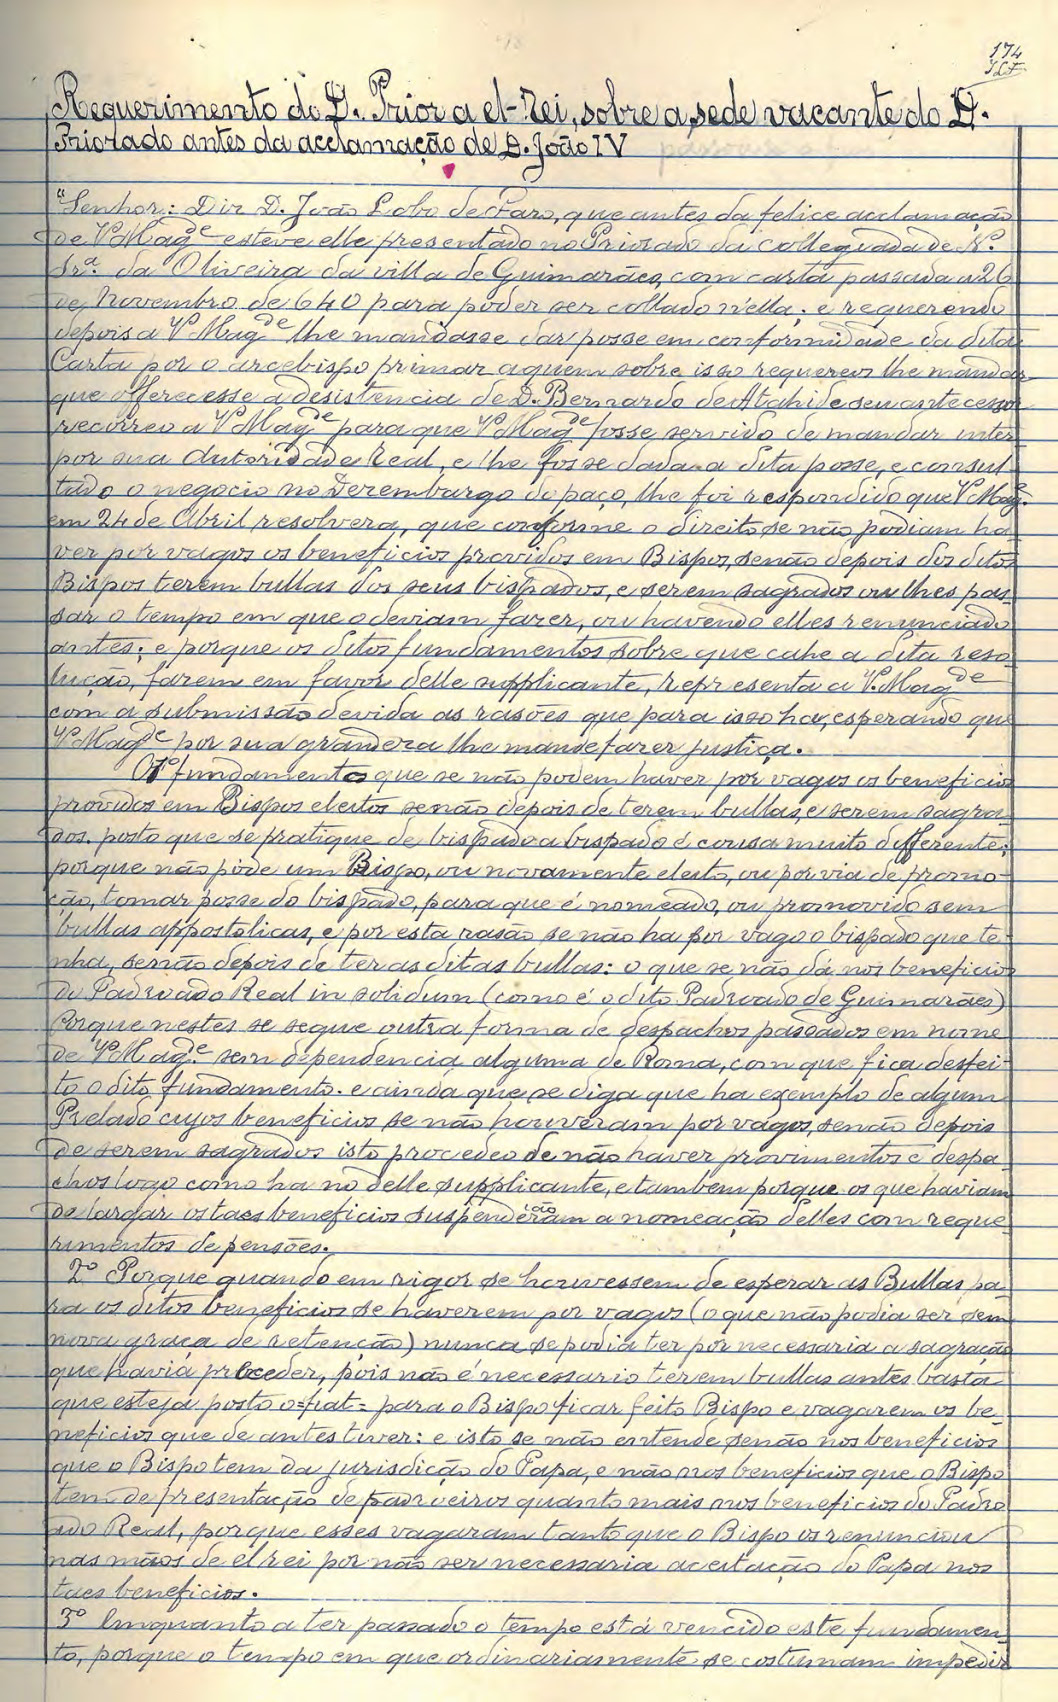 174
Requerimento do D. Prior a el-Rei, sobre a sede vacante do D.
Priorado antes da acclamação de D. João IV
"Senhor: Diz D. João Lobo de Faro, que antes da felice acclamação
de V. Mag.de esteve elle presentado no Priorado da Collegiada de N.
Sr.ª da Oliveira da villa de Guimarães, com carta passada a 26
de Novembro de 640 para poder ser collado n'ella; e requerendo
depois a V. Mag.de lhe mandasse dar posse em conformidade da dita
Carta por o arcebispo primaz a quem sobre isso requereu lhe mandar
que offerecesse a desistencia de D. Bernardo de Atahide seu antecessor
recorreo a V. Mag.de para que V. Mag.de fosse servido de mandar inter-
por sua Autoridade Real, e lhe fosse dada a dita posse, e consul-
tado o negocio no Dezembargo do paço, lhe foi respondido que V. Mag.e
em 24 de Abril resolvera, que conforme o direito se não podiam ha-
ver por vagos os beneficios providos em Bispos, senão depois dos ditos
Bispos terem bullas dos seus bispados, e serem sagrados ou lhes pas-
sar o tempo em que o deviam fazer, ou havendo elles renunciado
antes; e porque os ditos fundamentos sobre que cahe a dita reso-
lução, fazem em favor delle supplicante, representa a V. Mag.de
com a submissão devida as rasões que para isso ha, esperando que
V. Mag.e por sua grandeza lhe mande fazer justiça.
O 1º fundamento que se não podem haver por vagos os beneficios
providos em Bispos eleitos senão depois de terem bullas, e serem sagra-
dos. posto que se pratique de bispado a bispado é cousa muito differente;
porque não póde um Bispo, ou novamente eleito, ou por via de promo-
ção, tomar posse do bispado, para que é nomeado, ou promovido sem
bullas appostolicas, e por esta rasão se não ha por vago o bispado que te-
nha, senão depois de ter as ditas bullas: o que se não dá nos beneficios
do Padroado Real in solidum (como é o dito Padroado de Guimarães)
Porque nestes se segue outra forma de despachos passados em nome
de V. Mag.e sem dependencia alguma de Roma, com que fica desfei-
to o dito fundamento. e ainda que se diga que ha exemplo de algum
Prelado cujos beneficios se não houveram por vagos, senão depois
de serem sagrados isto procedeo de não haver provimentos e despa-
chos logo como ha no delle supplicante, e tambem porque os que haviam
de largar os taes beneficios suspenderam a nomeação delles com reque-
rimentos de pensões.
2º Porque quando em rigor se houvessem de esperar as Bullas pa-
ra os ditos beneficios se haverem por vagos (o que não podia ser sem
nova graça de retenção) nunca se podia ter por necessaria a sagração
que havia preceder, pois não é necessario terem bullas antes basta
que esteja posto o =fiat= para o Bispo ficar feito Bispo e vagarem os be-
neficios que de antes tiver: e isto se não entende senão nos beneficios
que o Bispo tem da jurisdicção do Papa, e não nos beneficios que o Bispo
tem de presentação de padroeiros quanto mais nos beneficios do Padro-
ado Real, porque esses vagaram tanto que o Bispo os renunciou
nas mãos de el rei por não ser necessaria aceitação do Papa nos
taes beneficios.
3º Emquanto a ter passado o tempo está vencido este fundamen-
to, porque o tempo em que ordinariamente se costumam impedir